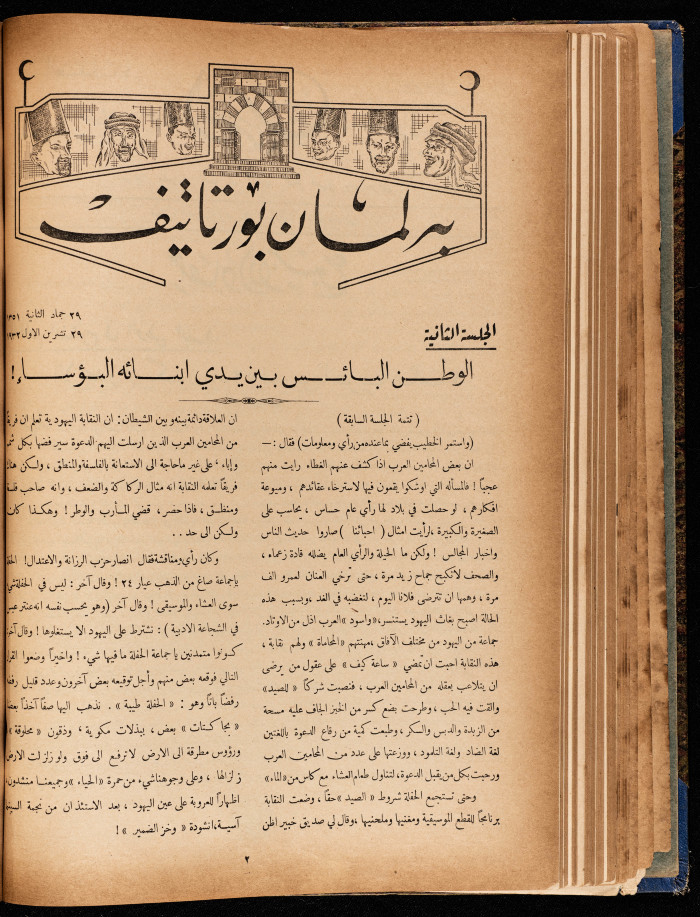 برلمان بورتاتيف
٢٩ جماد الثانية ١٣٥١
٢٩ تشرين الاول ١٩٣٢
الجلسة الثانية
الوطن البائس بين يدي ابنائه البؤساء!
( تتمة الجلسة السابقة )
(واستمر الخطيب يفضي بما عنده من رأي ومعلومات) فقال : —
ان بعض المحامين العرب اذا كشف عنهم الغطاء رايت منهم
عجباً ! فالمسأله التي اوشكوا يقعون فيها لاسترخاء عقائدهم ، وميوعة
افكارهم ، لو حصلت في بلاد لها رأي عام حساس ، يحاسب على
الصغيرة والكبيرة ، لرأيت امثال ( احبائنا ) صاروا حديث الناس
واخبار المجالس ! ولكن ما الحيلة والرأي العام يضلله قادة زعماء ،
والصحف لا تكبح جماح زيد مرة ، حتى ترخي العنان لعمرو الف
مرة ، وهمها ان تترضى فلانا اليوم ، لتغضبه في الغد ، وبسبب هذه
الحالة اصبح بغاث اليهود يستنسر، «واسود» العرب اذل من الاوتاد.
جماعة من اليهود من مختلف الآفاق، مهنتهم «المحاماة» ولهم نقابة ،
هذه النقابة احبت ان تمضي « ساعة كيف » على عقول من يرضى
ان يتلاعب بعقله من المحامين العرب ، فنصبت شركاً « للصيد»
والقت فيه الحب ، وطرحت بضع كسر من الخبز الجاف عليه مسحة
من الزبدة والدبس والسكر ، وطبعت كمية من رقاع الدعوة باللغتين
لغة الضاد ولغة التلمود ، ووزعتها على عدد من المحامين العرب
ورحبت بكل من يقبل الدعوة، لتناول طعام العشاء مع كاس من «الماء»
وحتى تستجمع الحفلة شروط « الصيد » حقاً ، وضعت النقابة
برنامجاً للقطع الموسيقية ومغنيها وملحنيها ، وقال لي صديق خبير اظن
ان العلاقة دائمة بينه وبين الشيطان : ان النقابة اليهودية تعلم ان فريقاً
من المحامين العرب الذين ارسلت اليهم الدعوة سيرفضها بكل
وإباء ، على غير ما حاجة الى الاستعانة بالفلسفة والمنطق ، ولكن
فريقاً تعلمه النقابة انه مثال الركاكة والضعف ، وانه صاحب
ومنطق ، فاذا حضر ، قضي المأرب والوطر ! وهكذا كان
ولكن الى حد . .
وكان رأي ومناقشة فقال انصار حزب الرزانة والاعتدال!
يا جماعة صاغ من الذهب عيار ٢٤ ! وقال آخر : ليس في الحفلة
سوى العشاء والموسيقى ! وقال آخر (وهو يحسب نفسه انه عنتر
في الشجاعة الادبية ) : نشترط على اليهود الا يستغلوها ! وقال
كونوا متمدنين يا جماعة الحفلة ما فيها شيء ! واخيراً وضعوا
التالي فوقعه بعض منهم وأجل توقيعه بعض آخرون وعدد قليل
رفضاً باتاً وهو : « الحفلة طيبة » . نذهب اليها صفاً آخذاً
« بجاكتات » بعض ، ببدلات مكوية ، وذقون « محلوقة »
ورؤوس مطرقة الى الارض لا ترفع الى فوق ولو زلزلت الارض
زلزالها ، وعلى وجوهنا شيء من حمرة «الحياء» وجميعنا منشدون
اظهاراً للعروبة على عين اليهود ، بعد الاستئذان من نجمة
آسية، انشودة « وخز الضمير » !
٢